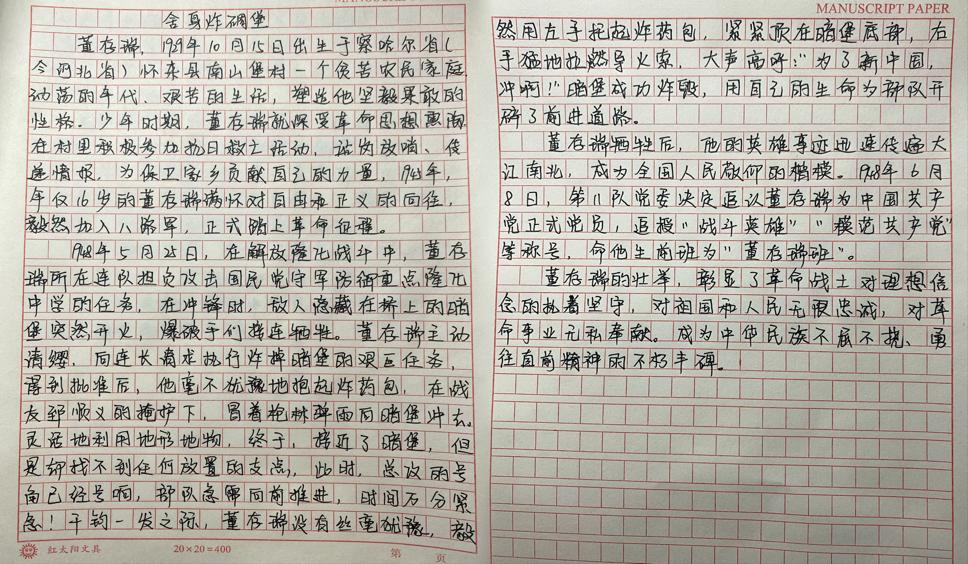 MANUSCRIPT PAPER
舍身炸碉堡
董存瑞，1929年10月15日出生于察哈尔省（
今河北省）怀来县南山堡村一个贫苦农民家庭
动荡的年代、艰苦的生活，塑造他坚毅果敢的
性格。少年时期，董存瑞就深受革命思想熏陶
在村里积极参加抗日救亡活动，站岗放哨、传
递情报，为保卫家乡贡献自己的力量，1945年，
年仅16岁的董存瑞满怀对自由和正义的向往，
毅然加入八路军，正式踏上革命征程。
1948年5月25日，在解放隆化战斗中，董存
瑞所在连队担负攻击国民党守军防御重点隆化
中学的任务，在冲锋时，敌人隐藏在桥上的暗
堡突然开火，爆破手们接连牺牲。董存瑞主动
请缨，向连长请求执行炸掉暗堡的艰巨任务，
得到批准后，他毫不犹豫地抱起炸药包，在战
友郅顺义的掩护下，冒着枪林弹雨向暗堡冲去。
灵活地利用地形地物，终于，接近了暗堡，但
是却找不到任何放置的支点，此时，总攻的号
角已经号响，部队急需向前推进，时间万分紧
急！千钧一发之际，董存瑞没有丝毫犹豫，毅
红太阳文具
20×20=400
第 页
MANUSCRIPT PAPER
然用左手托起炸药包，紧紧顶在暗堡底部，右
手猛地拉燃导火索，大声高呼：“为了新中国，
冲啊！”暗堡成功炸毁，用自己的生命为部队开
辟了前进道路。
董存瑞牺牲后，他的英雄事迹迅速传遍大
江南北，成为全国人民敬仰的楷模。1948年6月
8日，第11队党委决定追认董存瑞为中国共产
党正式党员，追授“战斗英雄”“模范共产党”
等称号，命他生前班为“董存瑞班”。
董存瑞的壮举，彰显了革命战士对理想信
念的执着坚守，对祖国和人民无限忠诚，对革
命事业无私奉献。成为中华民族不屈不挠、勇
往直前精神的不朽丰碑。